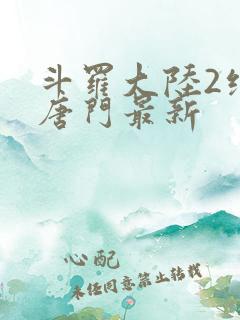 斗羅大陸2
唐門最新
心配
未经同意禁止转载